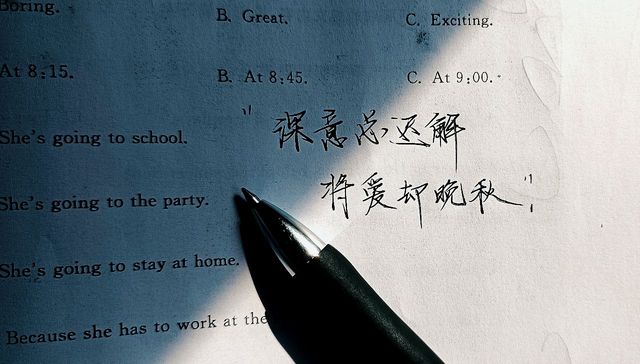 Boring.
B. Great.
C. Exciting.
At 8:15.
B. At 8:45.
C. At 9:00.
She's going to school.
"深意总迟解
She's going to the party.
将爱却晚秋"
She's going to stay at home.
Because she has to work at the